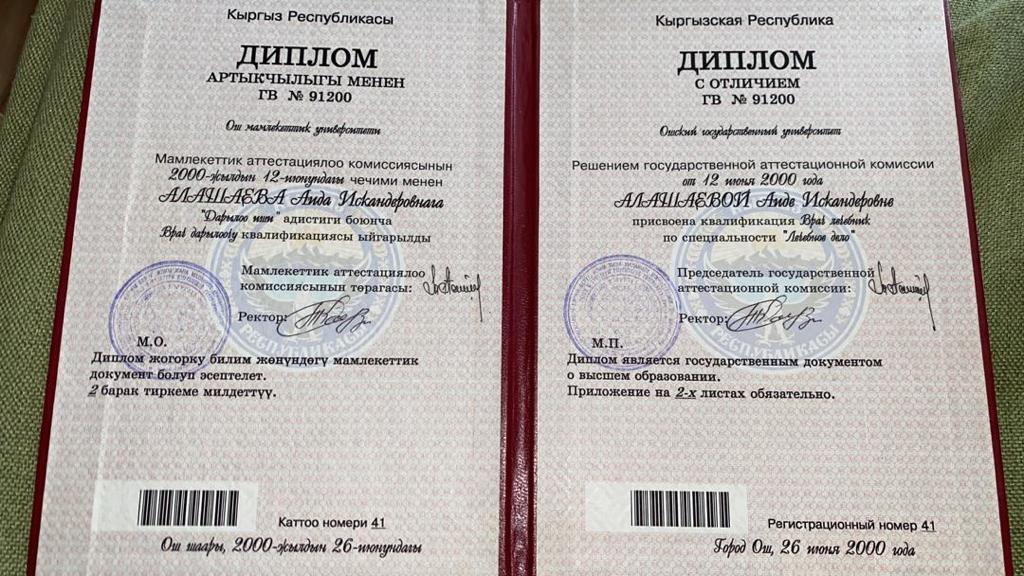 Кыргыз Республикасы
ДИПЛОМ
АРТЫКЧЫЛЫГЫ МЕНЕН
ГВ № 91200
Ош мамлекеттик университети
Мамлекеттик аттестациялоо комиссиясынын
2000-жылдын 12-июнундагы чечими менен
АЛАШАЕВА Аида Искандеровнага
"Дарылоо иши" адистиги боюнча
Врач дарылоочу квалификациясы ыйгарылды
Мамлекеттик аттестациялоо
комиссиясынын төрагасы:
Ректор:
М.О.
Диплом жогорку билим жөнүндөгү мамлекеттик
документ болуп эсептелет.
2 барак тиркеме милдеттүү.
Каттоо номери 41
Ош шаары, 2000-жылдын 26-июнундагы
Кыргызская Республика
ДИПЛОМ
С ОТЛИЧИЕМ
ГВ № 91200
Ошский государственный университет
Решением государственной аттестационной комиссии
от 12 июня 2000 года
АЛАШАЕВОЙ Аиде Искандеровне
присвоена квалификация Врач лечебник
по специальности "Лечебное дело"
Председатель государственной
аттестационной комиссии:
Ректор:
М.П.
Диплом является государственным документом
о высшем образовании.
Приложение на 2-х листах обязательно.
Регистрационный номер 41
Город Ош, 26 июня 2000 года